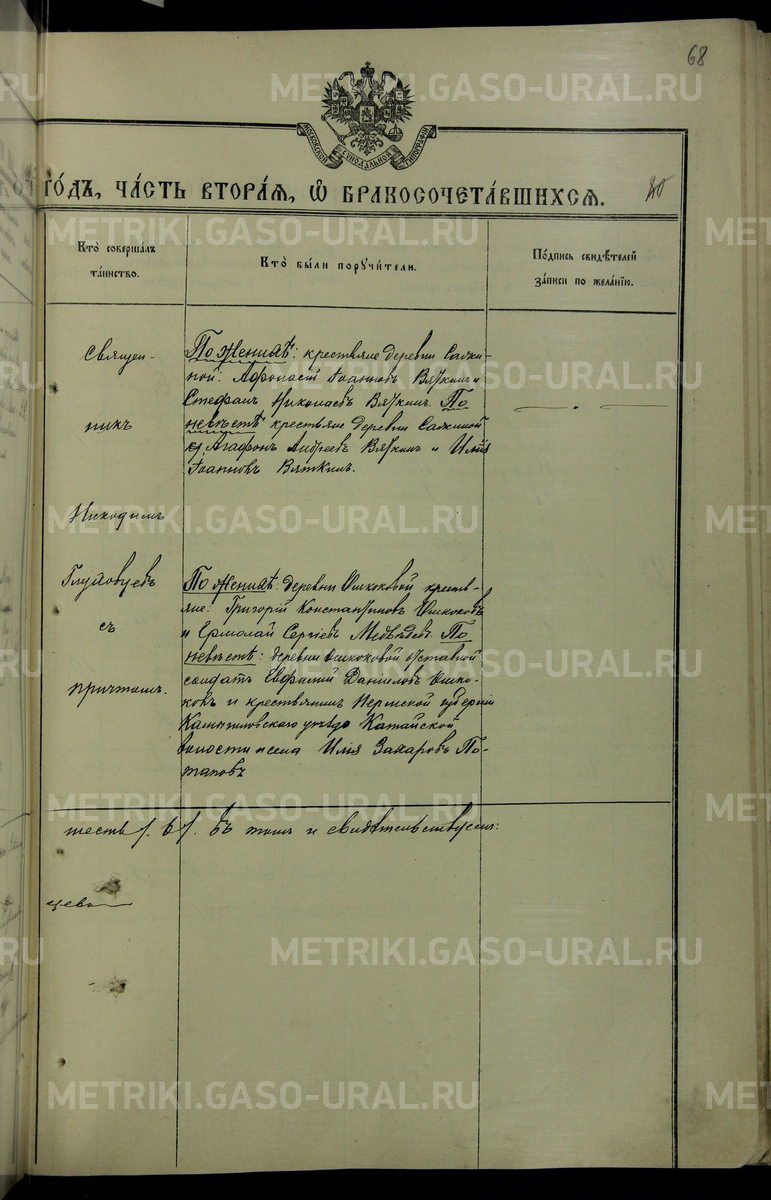 68
МОСКОВСКОЙ СѴНОДАЛЬНОЙ ТИПОГРАФІИ
ГО́ДЪ, ЧА́СТЬ ВТОРА́Я, Ѽ БРАКОСОЧЕТА́ВШИХСЯ.
Кто̀ соверша́лъ та́инство.
Кто̀ бы́ли порꙋчи́тели.
По́дпись свидѣ́телей за́писи по жела́нїю.
Священ-
никъ
Никодимъ
Глуховцевъ
съ
причтомъ.
По женихѣ: крестьяне деревни Салки-
ной: Аѳонасій Іоанновъ Вяткинъ и
Стефанъ Николаевъ Вяткинъ. По
невѣстѣ крестьяне деревни Салкиной
Агафонъ Андреевъ Вяткинъ и Илія
Іоанновъ Вяткинъ.
По женихѣ: деревни Ошкоковой кресть-
яне: Григорій Константиновъ Ошкоковъ
и Ермолай Сергіевъ Медвѣдевъ. По
невѣстѣ: деревни Ошкоковой отставной
солдатъ Евфимій Даніиловъ Ошко-
ковъ и крестьянинъ Пермской губерніи
Камышловскаго уѣзда Катайской
волости и села Илія Захаровъ По-
таповъ
шесть /. 6 /. Въ томъ и свидѣтельствуемъ:
цевъ
METRIKI.GASO-URAL.RU